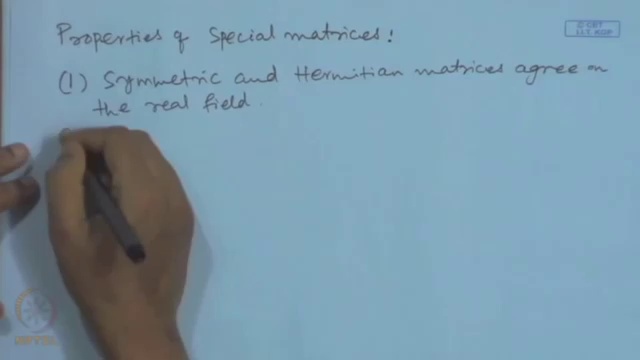 Properties of Special matrices:
© CET
I.I.T. KGP
(1) Symmetric and Hermitian matrices agree on
the real field.
NPTEL